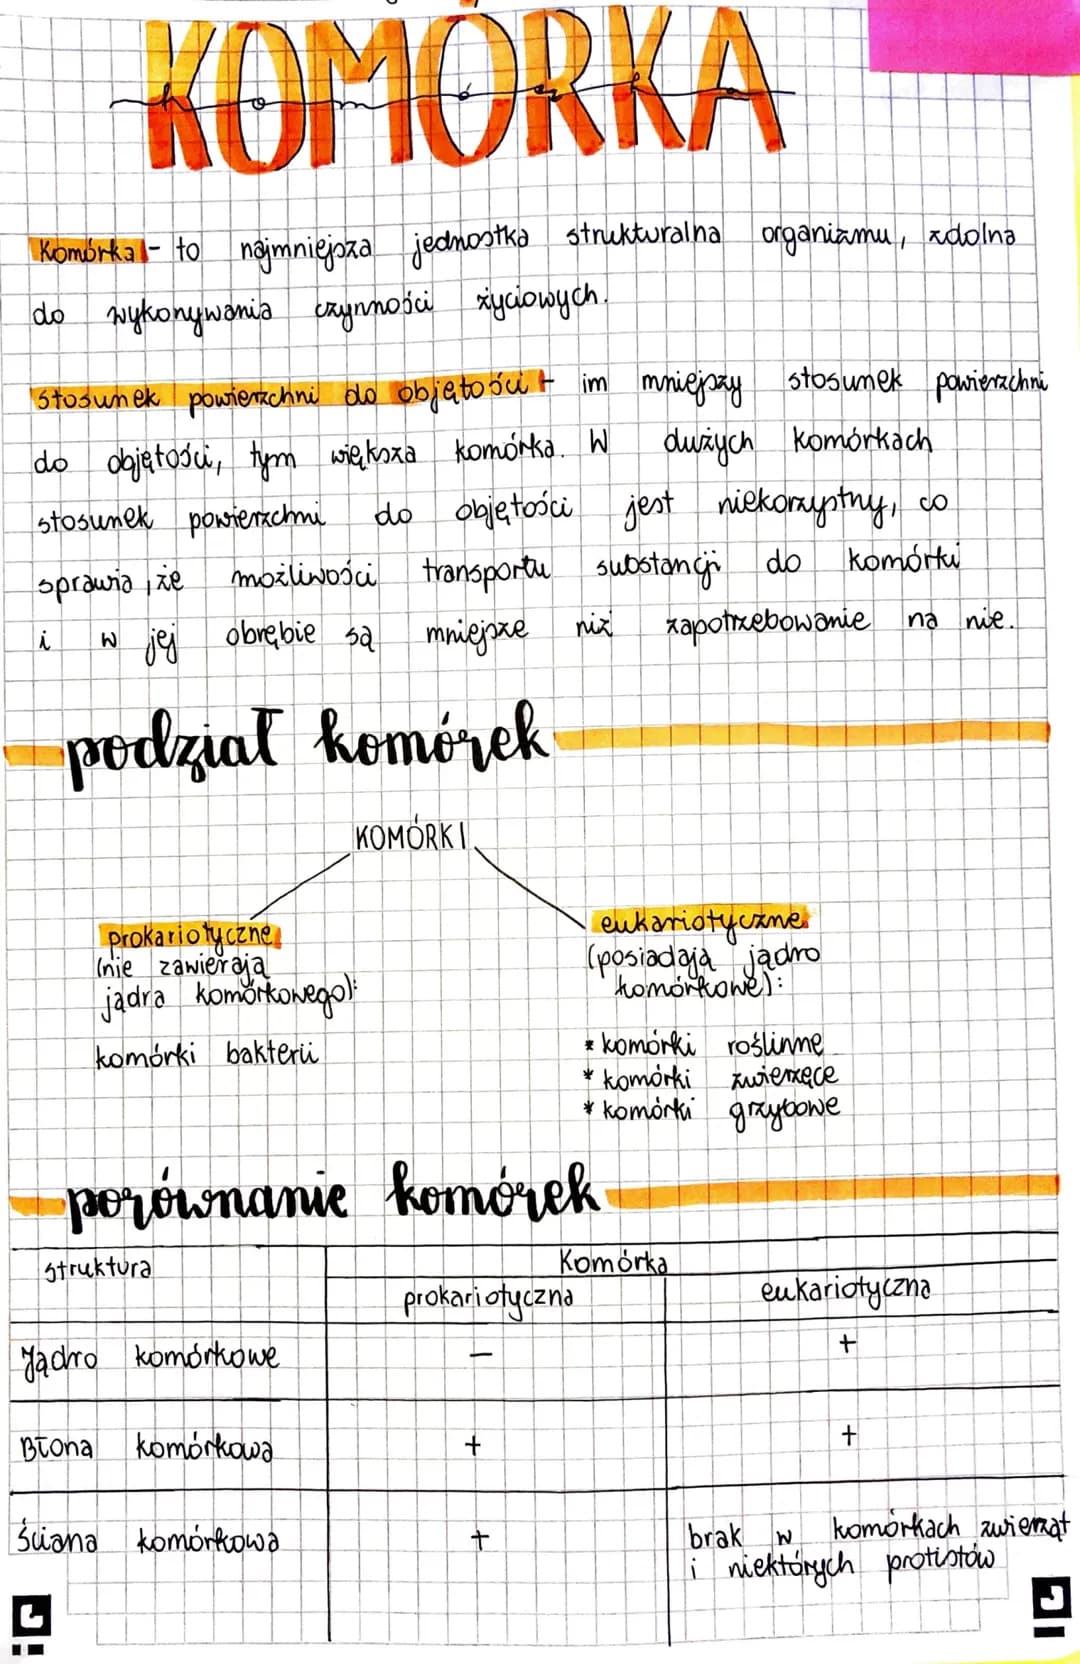 KOMÓRKA
komórka
Komórka - to najmniejsza jednostka strukturalna organizmu, zdolna
do wykonywania czynności życiowych.
stosunek powierzchni do objętości - im mniejszy stosunek powierzchni
do objętości, tym większa komórka. W dużych komórkach
stosunek powierzchni do objętości jest niekorzystny, co
sprawia, że możliwości transportu substancji do komórki
i w jej obrębie są mniejsze niż zapotrzebowanie na nie.
podział komórek
KOMÓRKI
prokariotyczne
(nie zawierają
jądra komórkowego):
komórki bakterii
eukariotyczne
(posiadają jądro
komórkowe):
* komórki roślinne
* komórki zwierzęce
* komórki grzybowe
porównanie komórek
struktura
Komórka
prokariotyczna
eukariotyczna
Jądro komórkowe
–
+
Błona komórkowa
+
+
Ściana komórkowa
+
brak w komórkach zwierząt
i niektórych protistów